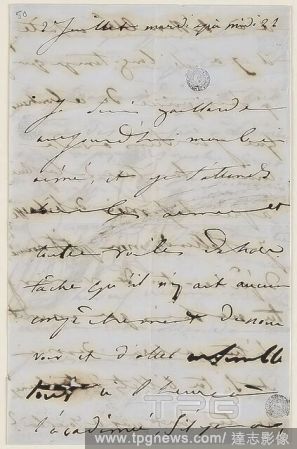 50
2 Juillet mardi midi
Je suis gaillarde
aujourd'hui mon bien
aimé, et je t'attends
armes et
toutes voiles dehors
tâche qu'il n'y ait aucun
empêchement de nous
voir et d'aller ensemble
tous à l'heure à
l'académie. Si je
TPG
www.tpgnews.com / 達志影像